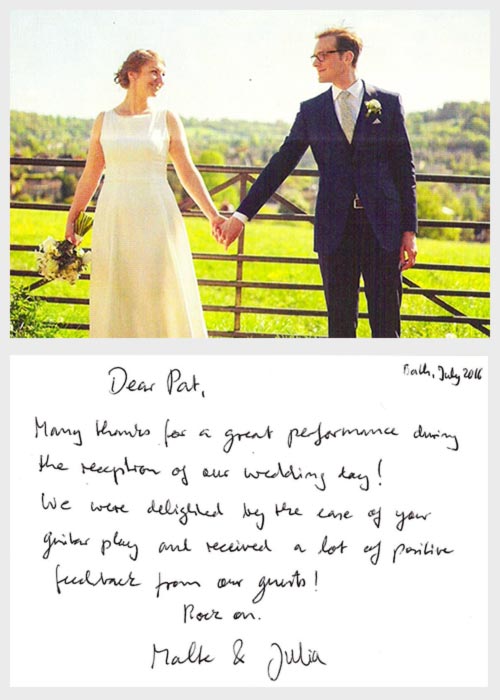 Bath, July 2016
Dear Pat,
Many thanks for a great performance during
the reception of our wedding day!
We were delighted by the ease of your
guitar play and received a lot of positive
feedback from our guests!
Rock on.
Malte & Julia